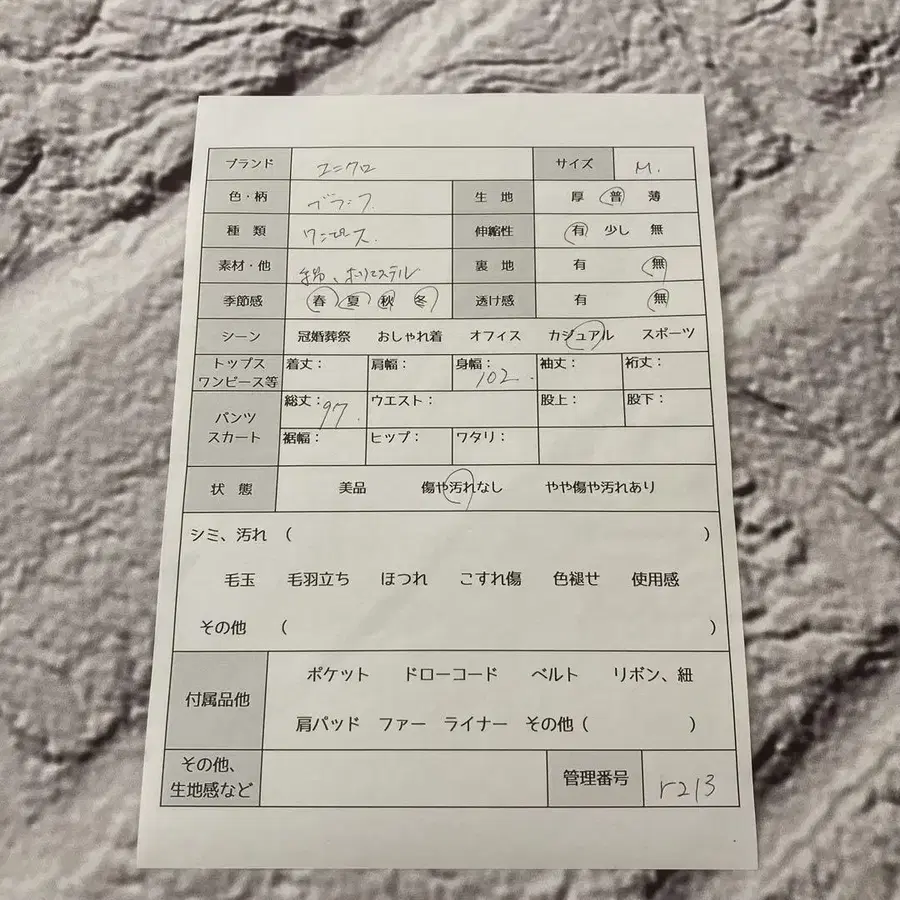 ブランド ユニクロ サイズ M.
色・柄 ブラック 生 地 厚 普 薄
種 類 ワンピース. 伸縮性 有 少し 無
素材・他 綿、ポリエステル 裏 地 有 無
季節感 春 夏 秋 冬 透け感 有 無
シーン 冠婚葬祭 おしゃれ着 オフィス カジュアル スポーツ
トップス
ワンピース等
着丈: 肩幅: 身幅: 102. 袖丈: 裄丈:
パンツ
スカート
総丈: 97. ウエスト: 股上: 股下:
裾幅: ヒップ: ワタリ:
状 態 美品 傷や汚れなし やや傷や汚れあり
シミ、汚れ ( )
毛玉 毛羽立ち ほつれ こすれ傷 色褪せ 使用感
その他 ( )
付属品他 ポケット ドローコード ベルト リボン、紐
肩パッド ファー ライナー その他 ( )
その他、
生地感など
管理番号 r213